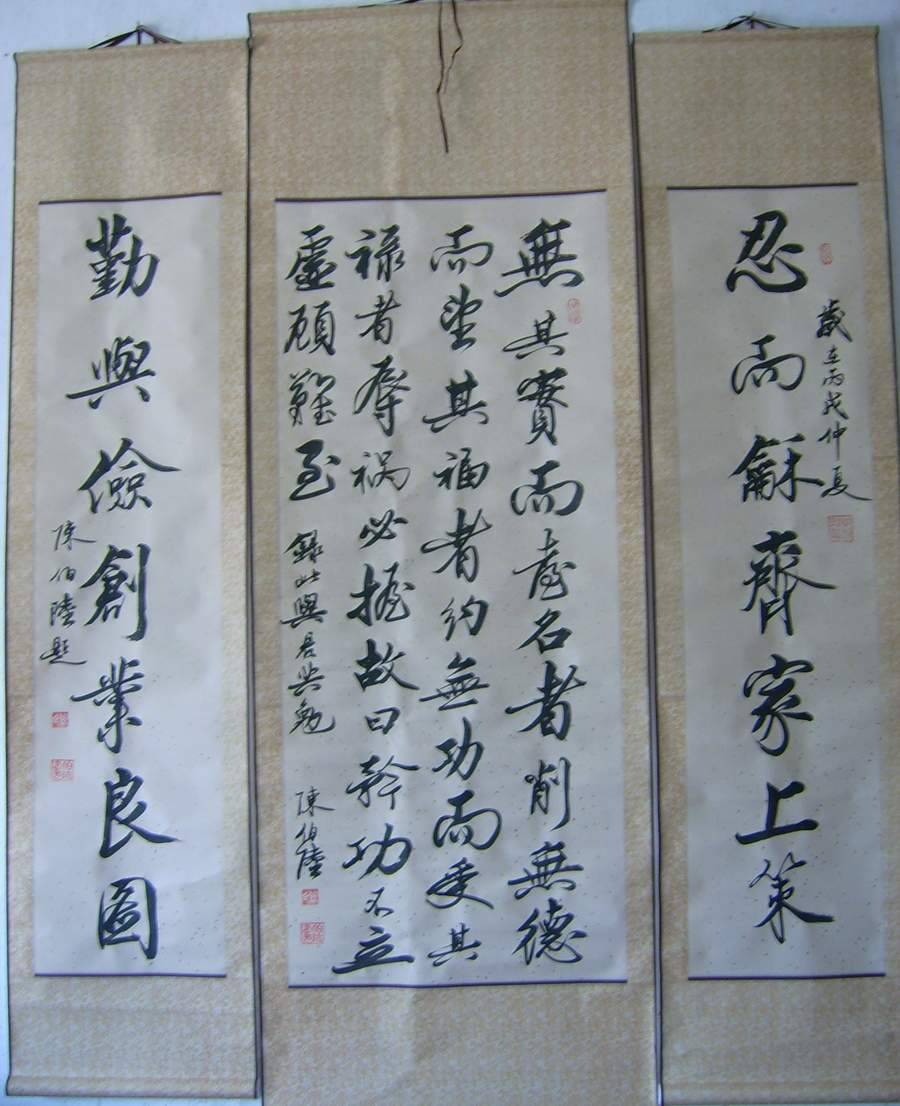 忍而龢齊家上策
歲在丙戌仲夏
無其實而喜名者削無德
而望其福者約無功而受其
祿者辱禍必握故曰矜功不立
虛願難至
錄此與君共勉
陳伯陸
勤與儉創業良圖
陳伯陸題